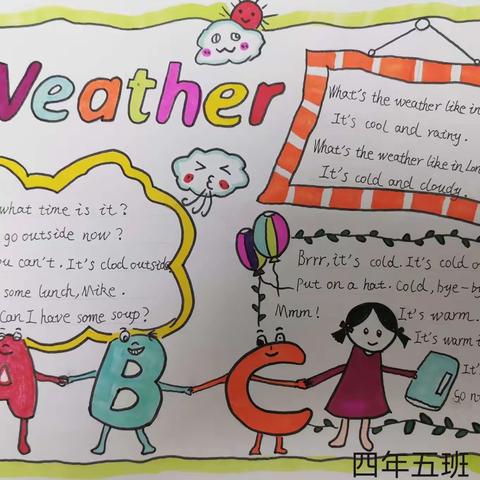 Weather
What's the weather like in
It's cool and rainy.
What's the weather like in Lon
It's cold and cloudy.
what time is it?
go outside now?
ou can't. It's clod outside
some lunch, Mike.
Can I have some soup?
Brrr, it's cold. It's cold o
Put on a hat. Cold, bye-by
Mmm!
It's warm.
It's warm t
It's
Go n
A B C
四年五班